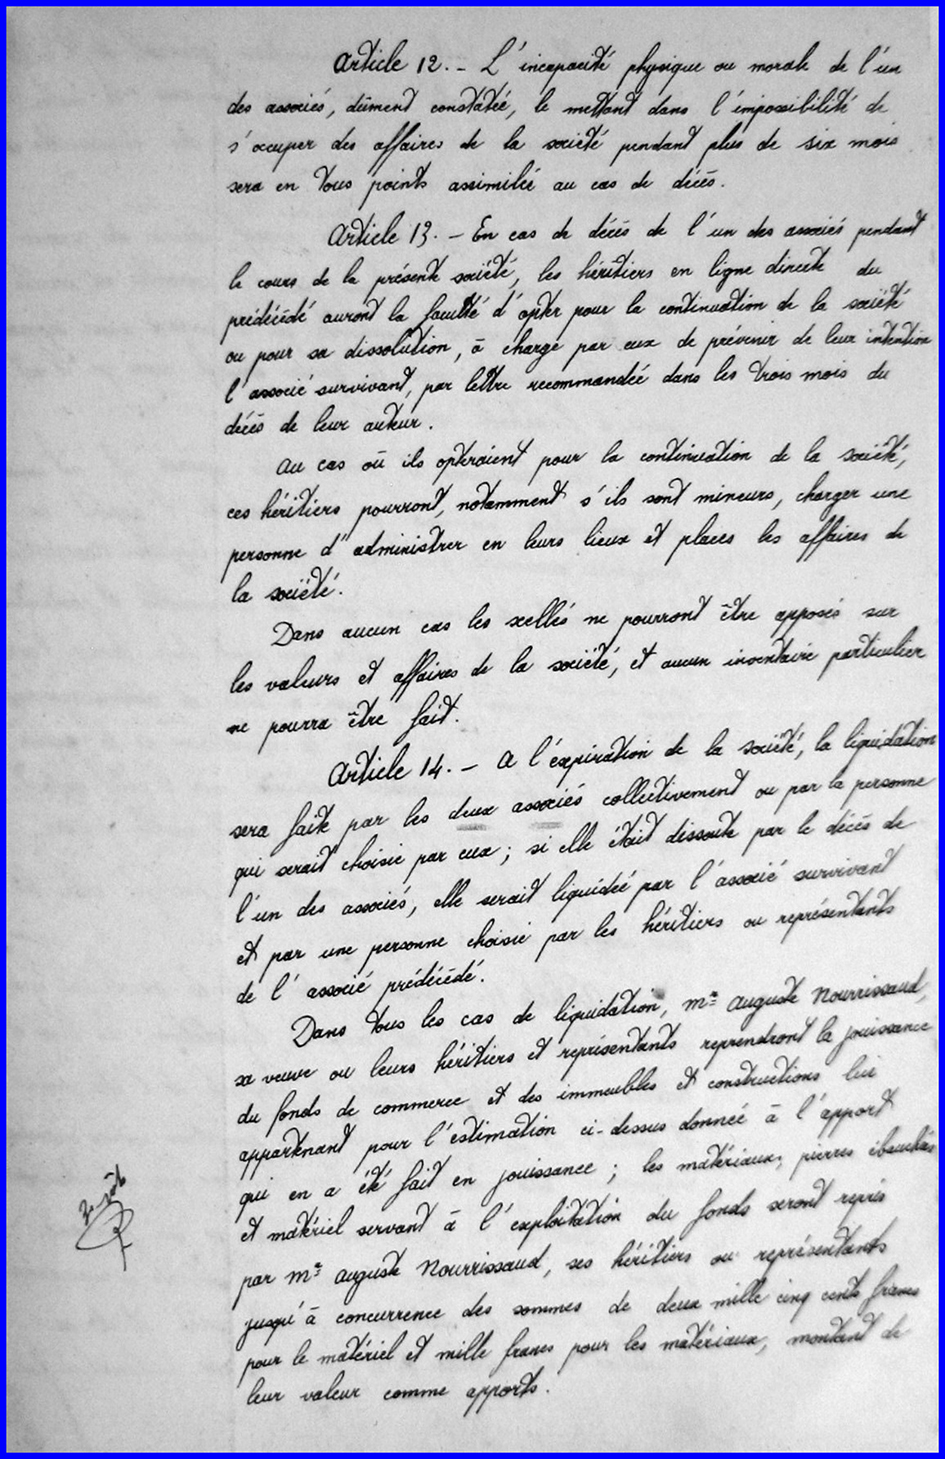 Article 12. - L'incapacité physique ou morale de l'un
des associés, dûment constatée, le mettant dans l'impossibilité de
s'occuper des affaires de la société pendant plus de six mois
sera en tous points assimilée au cas de décès.
Article 13. - En cas de décès de l'un des associés pendant
le cours de la présente société, les héritiers en ligne directe du
prédécédé auront la faculté d'opter pour la continuation de la société
ou pour sa dissolution, à charge par eux de prévenir de leur intention
l'associé survivant, par lettre recommandée dans les trois mois du
décès de leur auteur.
Au cas où ils opteraient pour la continuation de la société,
ces héritiers pourront, notamment s'ils sont mineurs, charger une
personne d'administrer en leurs lieux et places les affaires de
la société.
Dans aucun cas les scellés ne pourront être apposés sur
les valeurs et affaires de la société, et aucun inventaire particulier
ne pourra être fait.
Article 14. - A l'expiration de la société, la liquidation
sera faite par les deux associés collectivement ou par la personne
qui serait choisie par eux ; si elle était dissoute par le décès de
l'un des associés, elle serait liquidée par l'associé survivant
et par une personne choisie par les héritiers ou représentants
de l'associé prédécédé.
Dans tous les cas de liquidation, Mr Auguste Nourrissaud,
sa veuve ou leurs héritiers et représentants reprendront la jouissance
du fonds de commerce et des immeubles et constructions lui
appartenant pour l'estimation ci-dessus donnée à l'apport
qui en a été fait en jouissance ; les matériaux, pierres ébauchées
et matériel servant à l'exploitation du fonds seront repris
par Mr Auguste Nourrissaud, ses héritiers ou représentants
jusqu'à concurrence des sommes de deux mille cinq cents francs
pour le matériel et mille francs pour les matériaux, montant de
leur valeur comme apports.